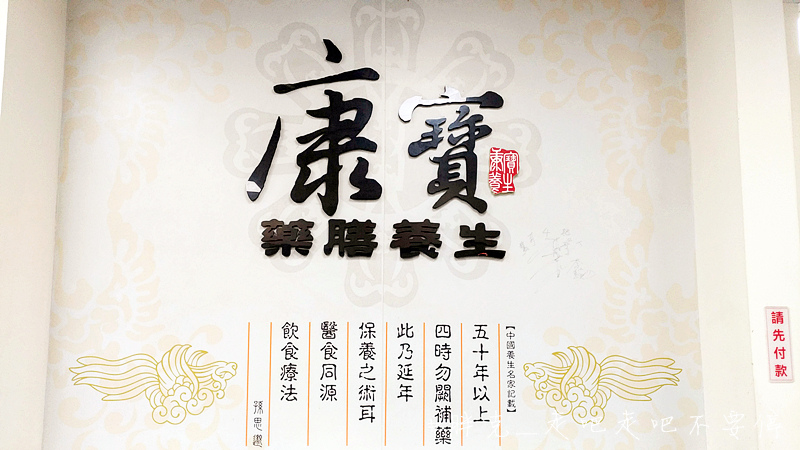 康寶
寶生
康養
藥膳養生
【中國養生名家記載】
五十年以上
四時勿闕補藥
此乃延年
保養之術耳
醫食同源
飲食療法
孫思邈
請先付款